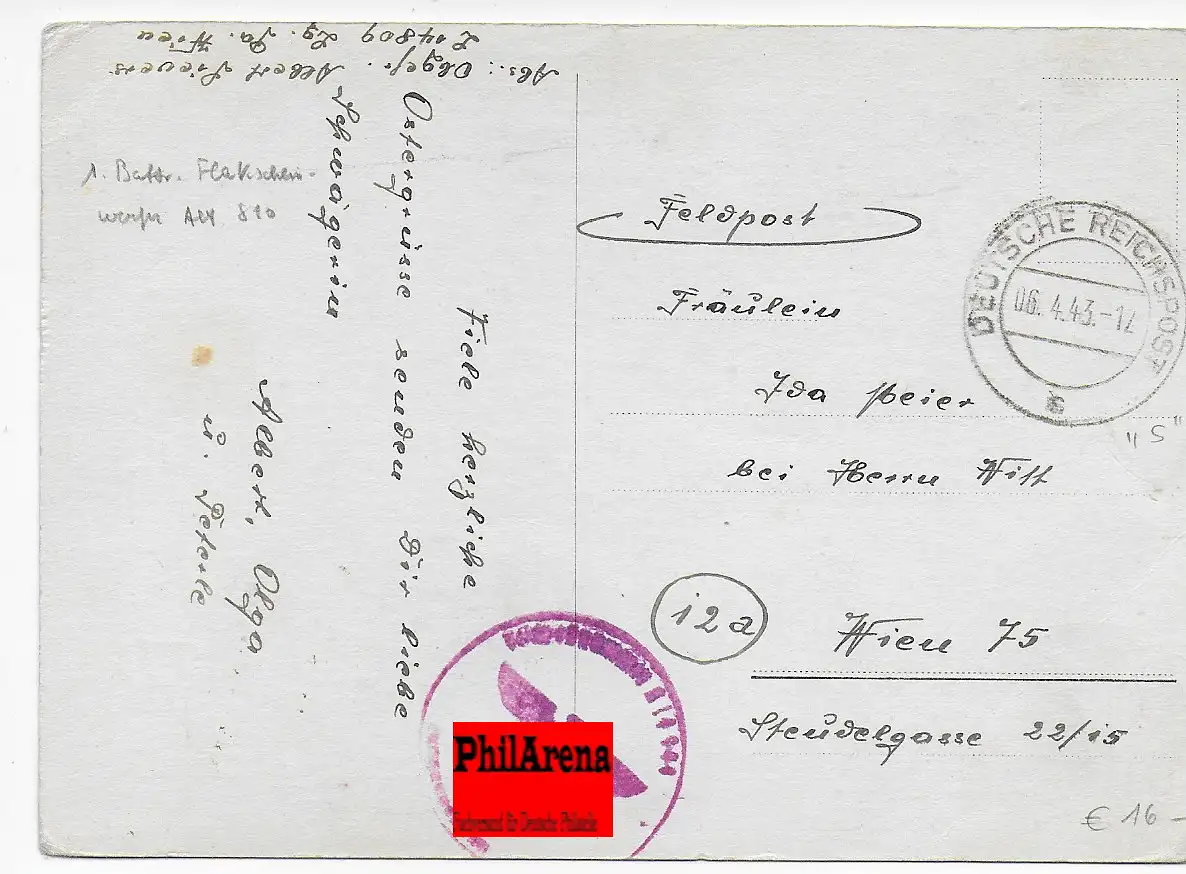 Abs.: Obgefr. Albert Sievers
L 14809 Lg. Pa. Wien
Viele herzliche
Ostergrüsse senden Dir liebe
Schwägerin
Albert, Olga
u. Peterle
1. Battr. Flakschein-
werfer Abt. 810
Feldpost
Fräulein
Ida Meier
bei Herrn Witt
12a
Wien 75
Steudelgasse 22/15
DEUTSCHE REICHSPOST
06.4.43.-12
"S"
€ 16-
PhilArena